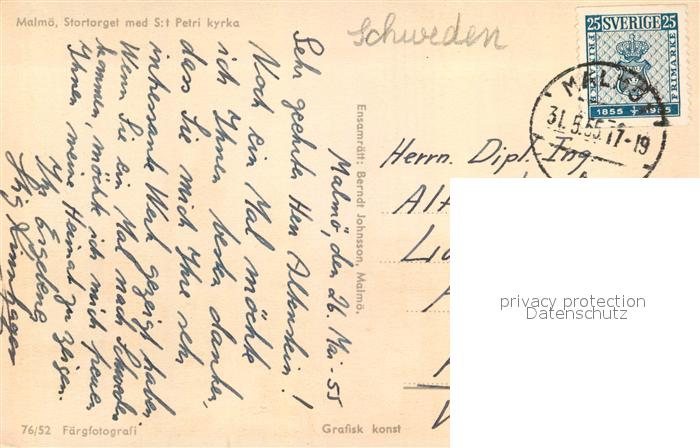 Malmö, Stortorget med S:t Petri kyrka
Schweden
25 SVERIGE 25
FRIMÄRKE
FRIMÄRKE
1855 1955
MALMÖ 1
31.5.55.17-19
Malmö, den 26. Mai -55
Sehr geehrter Herr Altenstein!
Noch ein Mal möchte
ich Ihnen bestens danken,
dass Sie mich Ihre sehr
interessante Werk gezeigt haben.
Wenn Sie ein Mal nach Schweden
kommen, möchte ich mich freuen,
Ihnen meine Heimat zu zeigen.
Ihr Ergebene
Ensamrätt: Berndt Johnsson, Malmö.
Herrn. Dipl.-Ing.
Alt
privacy protection
Datenschutz
76/52 Färgfotografi
Grafisk konst